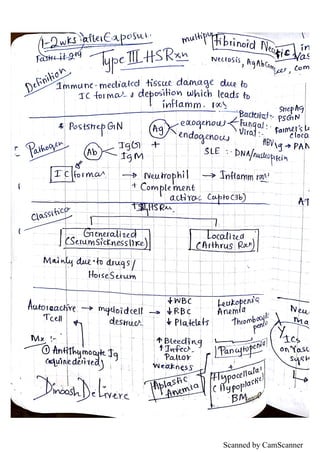 1-2wks after Exposur
Faster if 2ry
Type III HSRxn
multiple
Fibrinoid Ne
Necrosis, Ag Ab Com
Definition
Immune-mediated tissue damage due to
IC format & deposition which leads to
inflamm. rxs
* PoststrepGN
Ag
exogenous
endogenous
Bacterial:- StrepAg
PSGN
Fungal:- Farmer's L
Viral:-
HBV Ag → PAN
SLE :- DNA/nucleoprotein
Pathogen
Ab
IgG +
IgM
IC format → Neutrophil → Inflamm rxn
+ Complement
activac (upto C3b)
Classifica
III HSRxn
Generalized
(Serum Sickness like)
Localized
(Arthrus Rxn)
Mainly due to drugs/
Horse Serum
Autoreactive → myeloid cell →
Tcell
destruc
↓WBC
↓RBC
↓Platelets
Leukopenia
Anemia
Thrombocyto
penia
Mx :-
① Antithymocyte Ig
equine derived
↑ Bleeding
↑ Infect
Pallor
Weakness
Pancytopenia
+
Hypocellular
(Hypoplastic)
BM
Aplastic
Anemia
Dinoosh De Livera
ICs
on Vasc
system
Scanned by CamScanner